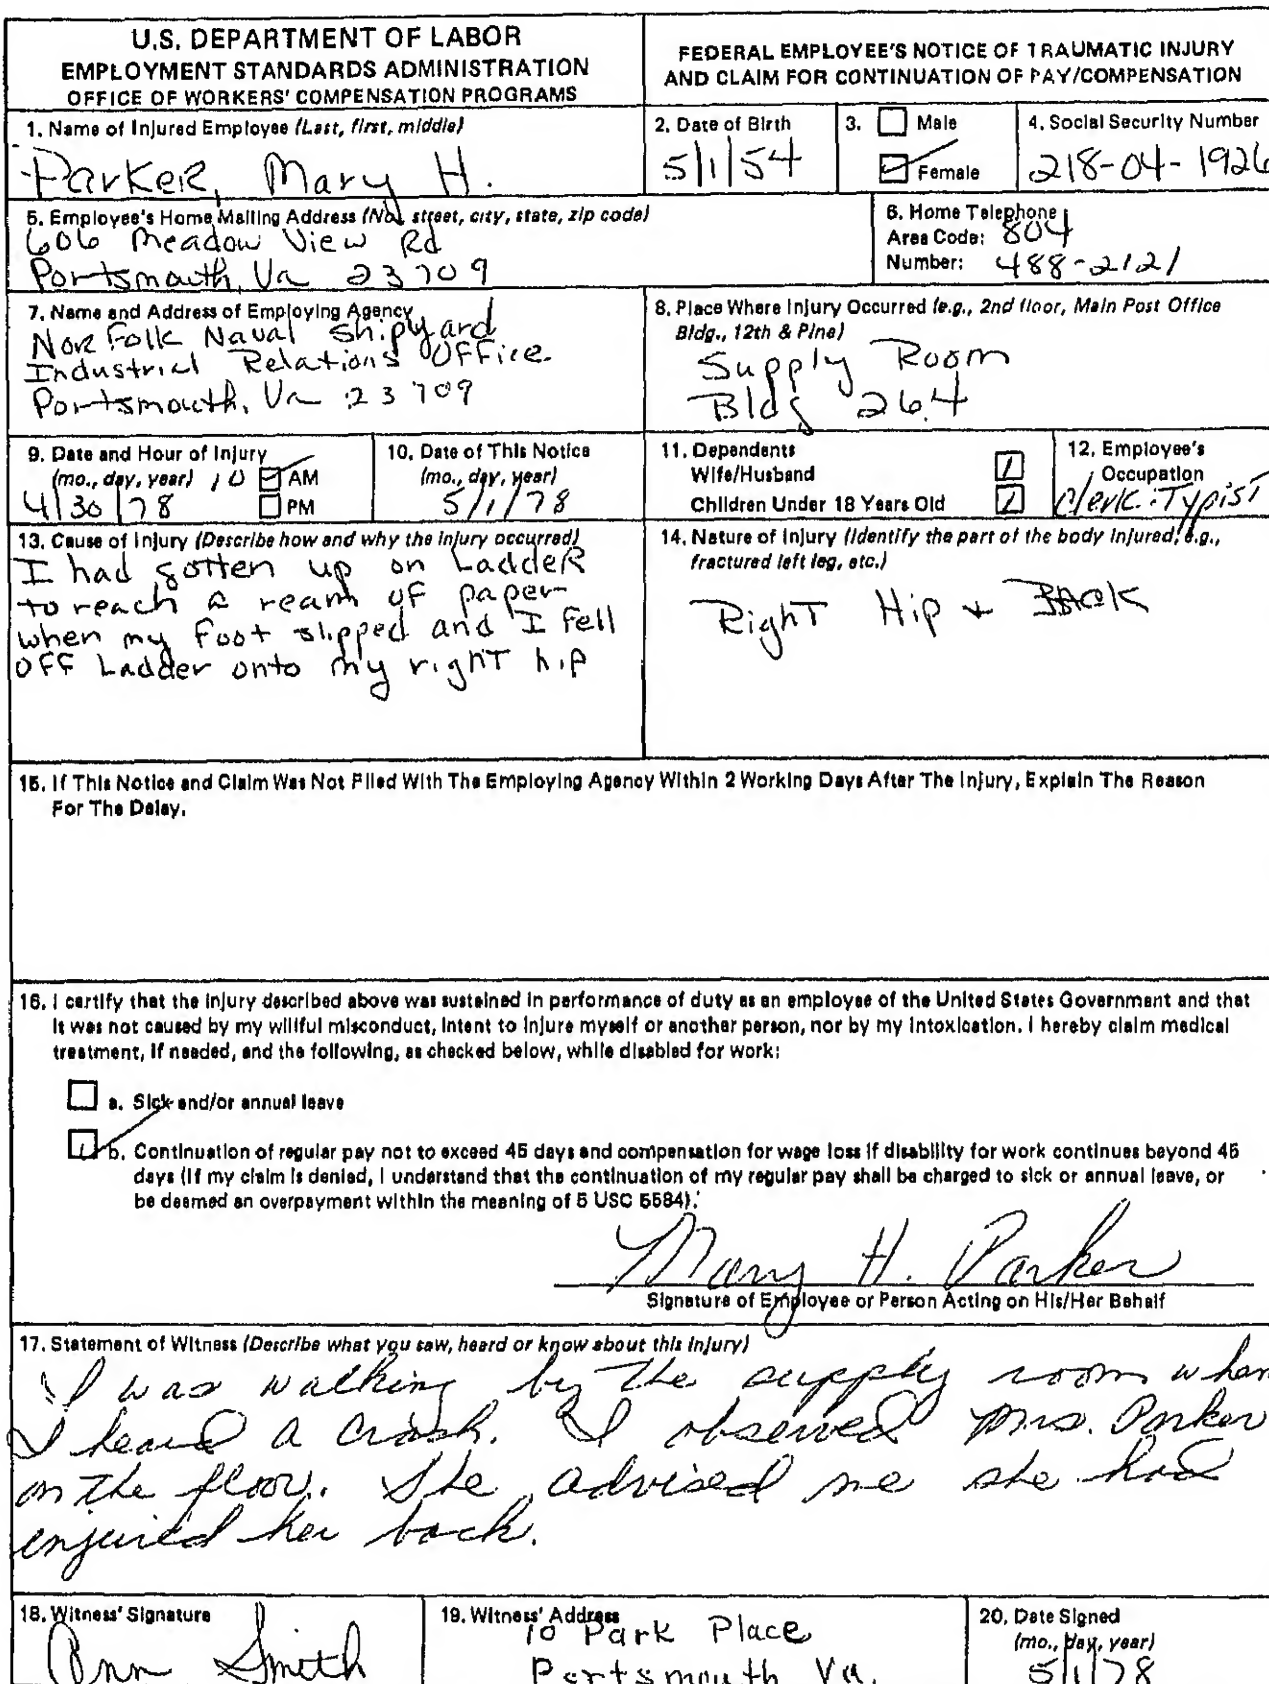 U.S. DEPARTMENT OF LABOR
EMPLOYMENT STANDARDS ADMINISTRATION
OFFICE OF WORKERS' COMPENSATION PROGRAMS
FEDERAL EMPLOYEE'S NOTICE OF TRAUMATIC INJURY
AND CLAIM FOR CONTINUATION OF PAY/COMPENSATION
1. Name of Injured Employee (Last, first, middle)
Parker, Mary H.
2. Date of Birth
5/1/54
3. Male
Female
4. Social Security Number
218-04-1926
5. Employee's Home Mailing Address (No. street, city, state, zip code)
606 Meadow View Rd
Portsmouth, Va 23709
6. Home Telephone
Area Code: 804
Number: 488-2121
7. Name and Address of Employing Agency
Norfolk Naval Shipyard
Industrial Relations Office
Portsmouth, Va 23709
8. Place Where Injury Occurred (e.g., 2nd floor, Main Post Office
Bldg., 12th & Pine)
Supply Room
Bldg 264
9. Date and Hour of Injury
(mo., day, year) 10 AM
4/30/78 PM
10. Date of This Notice
(mo., day, year)
5/1/78
11. Dependents
Wife/Husband 1
Children Under 18 Years Old 1
12. Employee's
Occupation
Clerk-Typist
13. Cause of Injury (Describe how and why the injury occurred)
I had gotten up on Ladder
to reach a ream of paper
when my foot slipped and I fell
off Ladder onto my right hip
14. Nature of Injury (Identify the part of the body injured, e.g.,
fractured left leg, etc.)
Right Hip + BACK
15. If This Notice and Claim Was Not Filed With The Employing Agency Within 2 Working Days After The Injury, Explain The Reason
For The Delay.
16. I certify that the injury described above was sustained in performance of duty as an employee of the United States Government and that
it was not caused by my willful misconduct, intent to injure myself or another person, nor by my intoxication. I hereby claim medical
treatment, if needed, and the following, as checked below, while disabled for work:
a. Sick and/or annual leave
b. Continuation of regular pay not to exceed 45 days and compensation for wage loss if disability for work continues beyond 45
days (If my claim is denied, I understand that the continuation of my regular pay shall be charged to sick or annual leave, or
be deemed an overpayment within the meaning of 5 USC 5584).
Mary H. Parker
Signature of Employee or Person Acting on His/Her Behalf
17. Statement of Witness (Describe what you saw, heard or know about this injury)
I was walking by the supply room when
I heard a crash. I observed Mrs. Parker
on the floor. She advised me she had
injured her back.
18. Witness' Signature
Ann Smith
19. Witness' Address
10 Park Place
Portsmouth Va.
20. Date Signed
(mo., day, year)
5/1/78